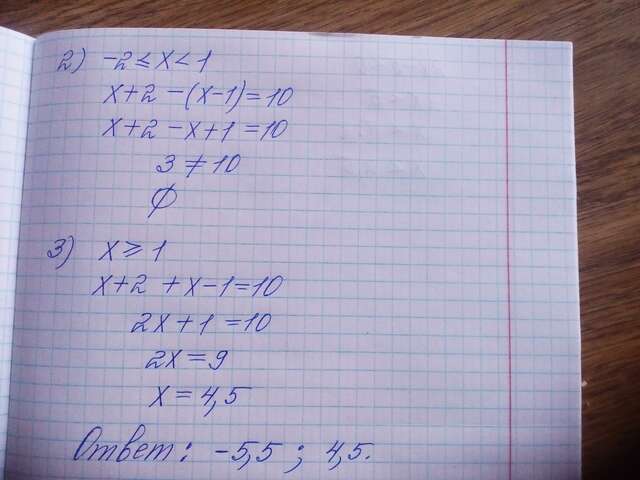 2) -2 ≤ x < 1
x+2 -(x-1)=10
x+2-x+1=10
3 ≠ 10
∅
3) x ⩾ 1
x+2 +x-1=10
2x+1 =10
2x=9
x=4,5
Ответ: -5,5 ; 4,5.